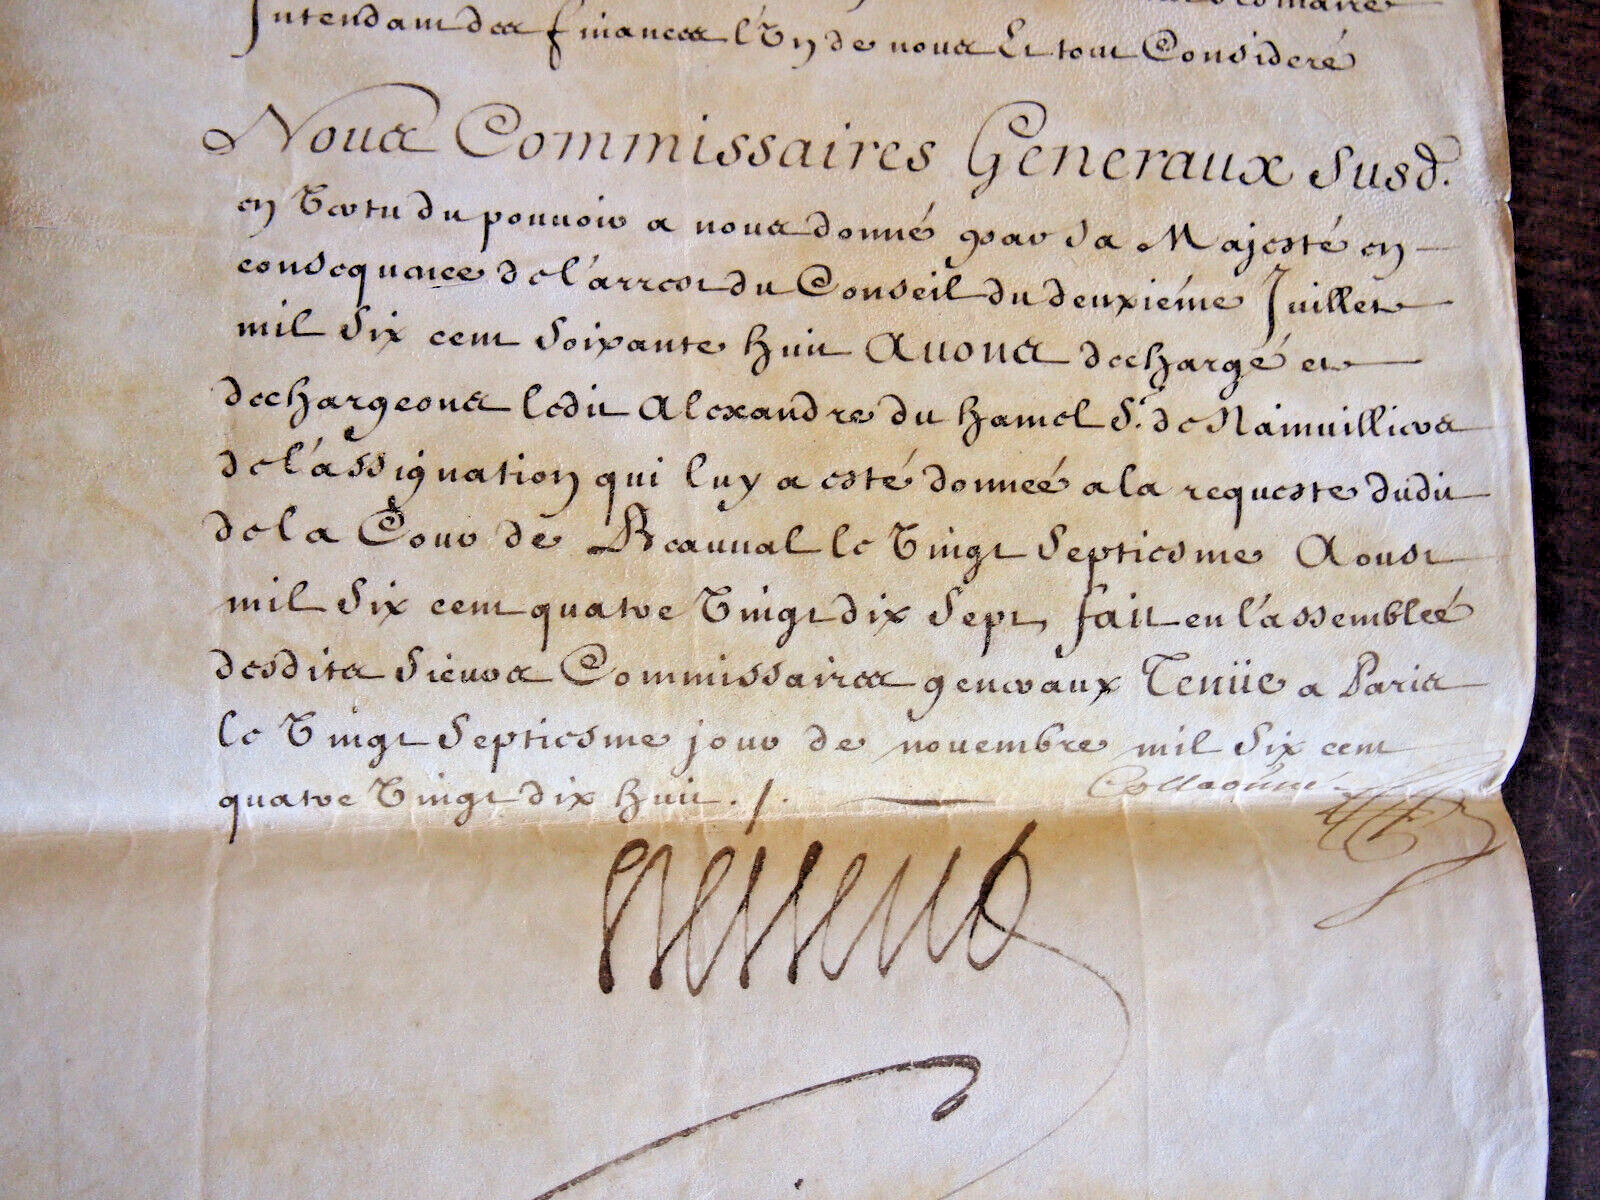 Intendant des finances l'Un de nous Et tout Consideré
Nous Commissaires Generaux Susd.
en Vertu du pouuoir a nous donné par Sa Majesté en
consequance de l'arrest du Conseil du deuxiéme Juillet
mil Six cent Soixante huit Auons dechargé et
dechargeons ledit Alexandre du hamel Sr. de Nainuilliers
de l'assignation qui luy a esté donneé a la requeste dudit
de la Cour de Beauual le Vingt Septiesme Aoust
mil Six cent quatre Vingt dix Sept, fait en l'assembleé
desdits Sieurs Commissaires generaux Tenüe a Paris
le Vingt Septiesme jour de nouembre mil Six cent
quatre Vingt dix huit ./.
Collaonné